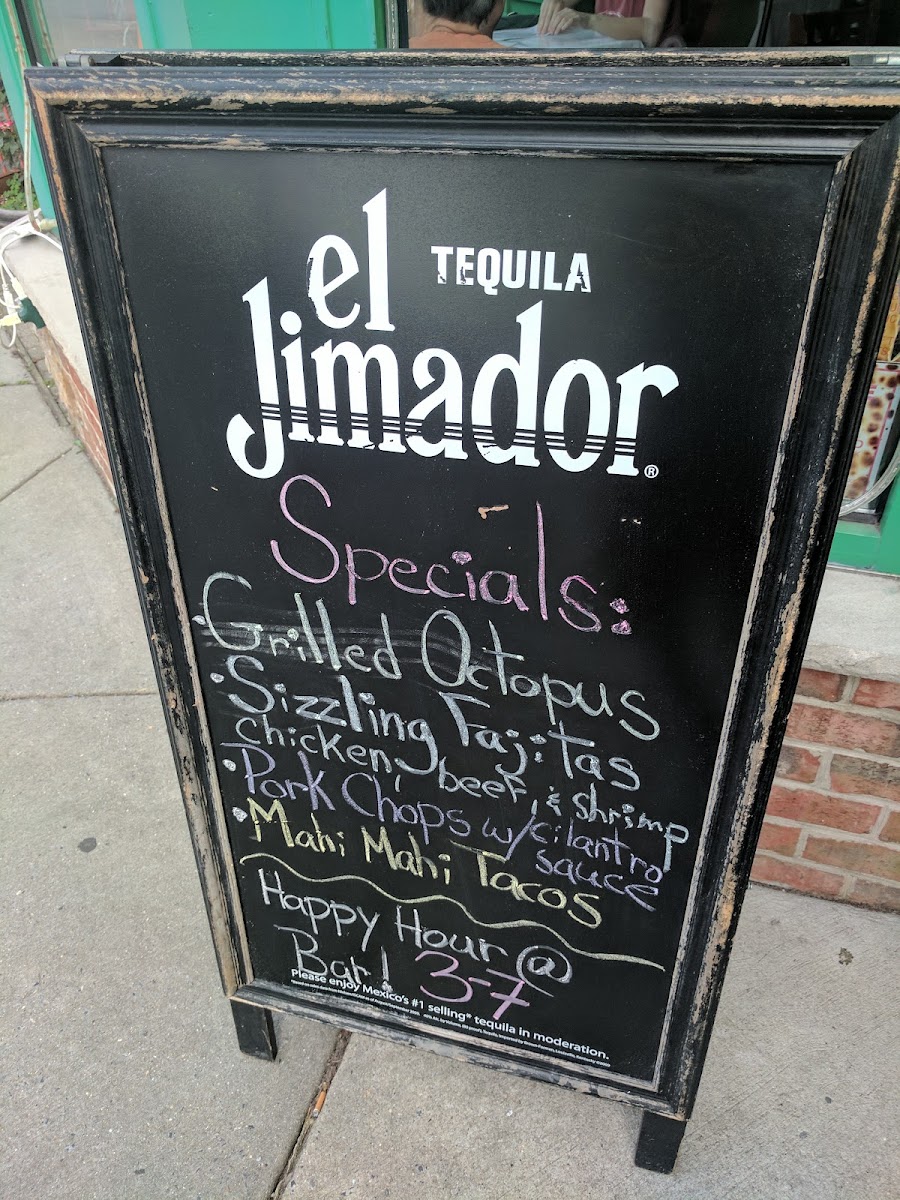 el TEQUILA
Jimador®
Specials:
• Grilled Octopus
• Sizzling Fajitas
chicken, beef, & shrimp
• Pork Chops w/cilantro
sauce
• Mahi Mahi Tacos
Happy Hour @
Bar! 3-7
Please enjoy Mexico's #1 selling* tequila in moderation.